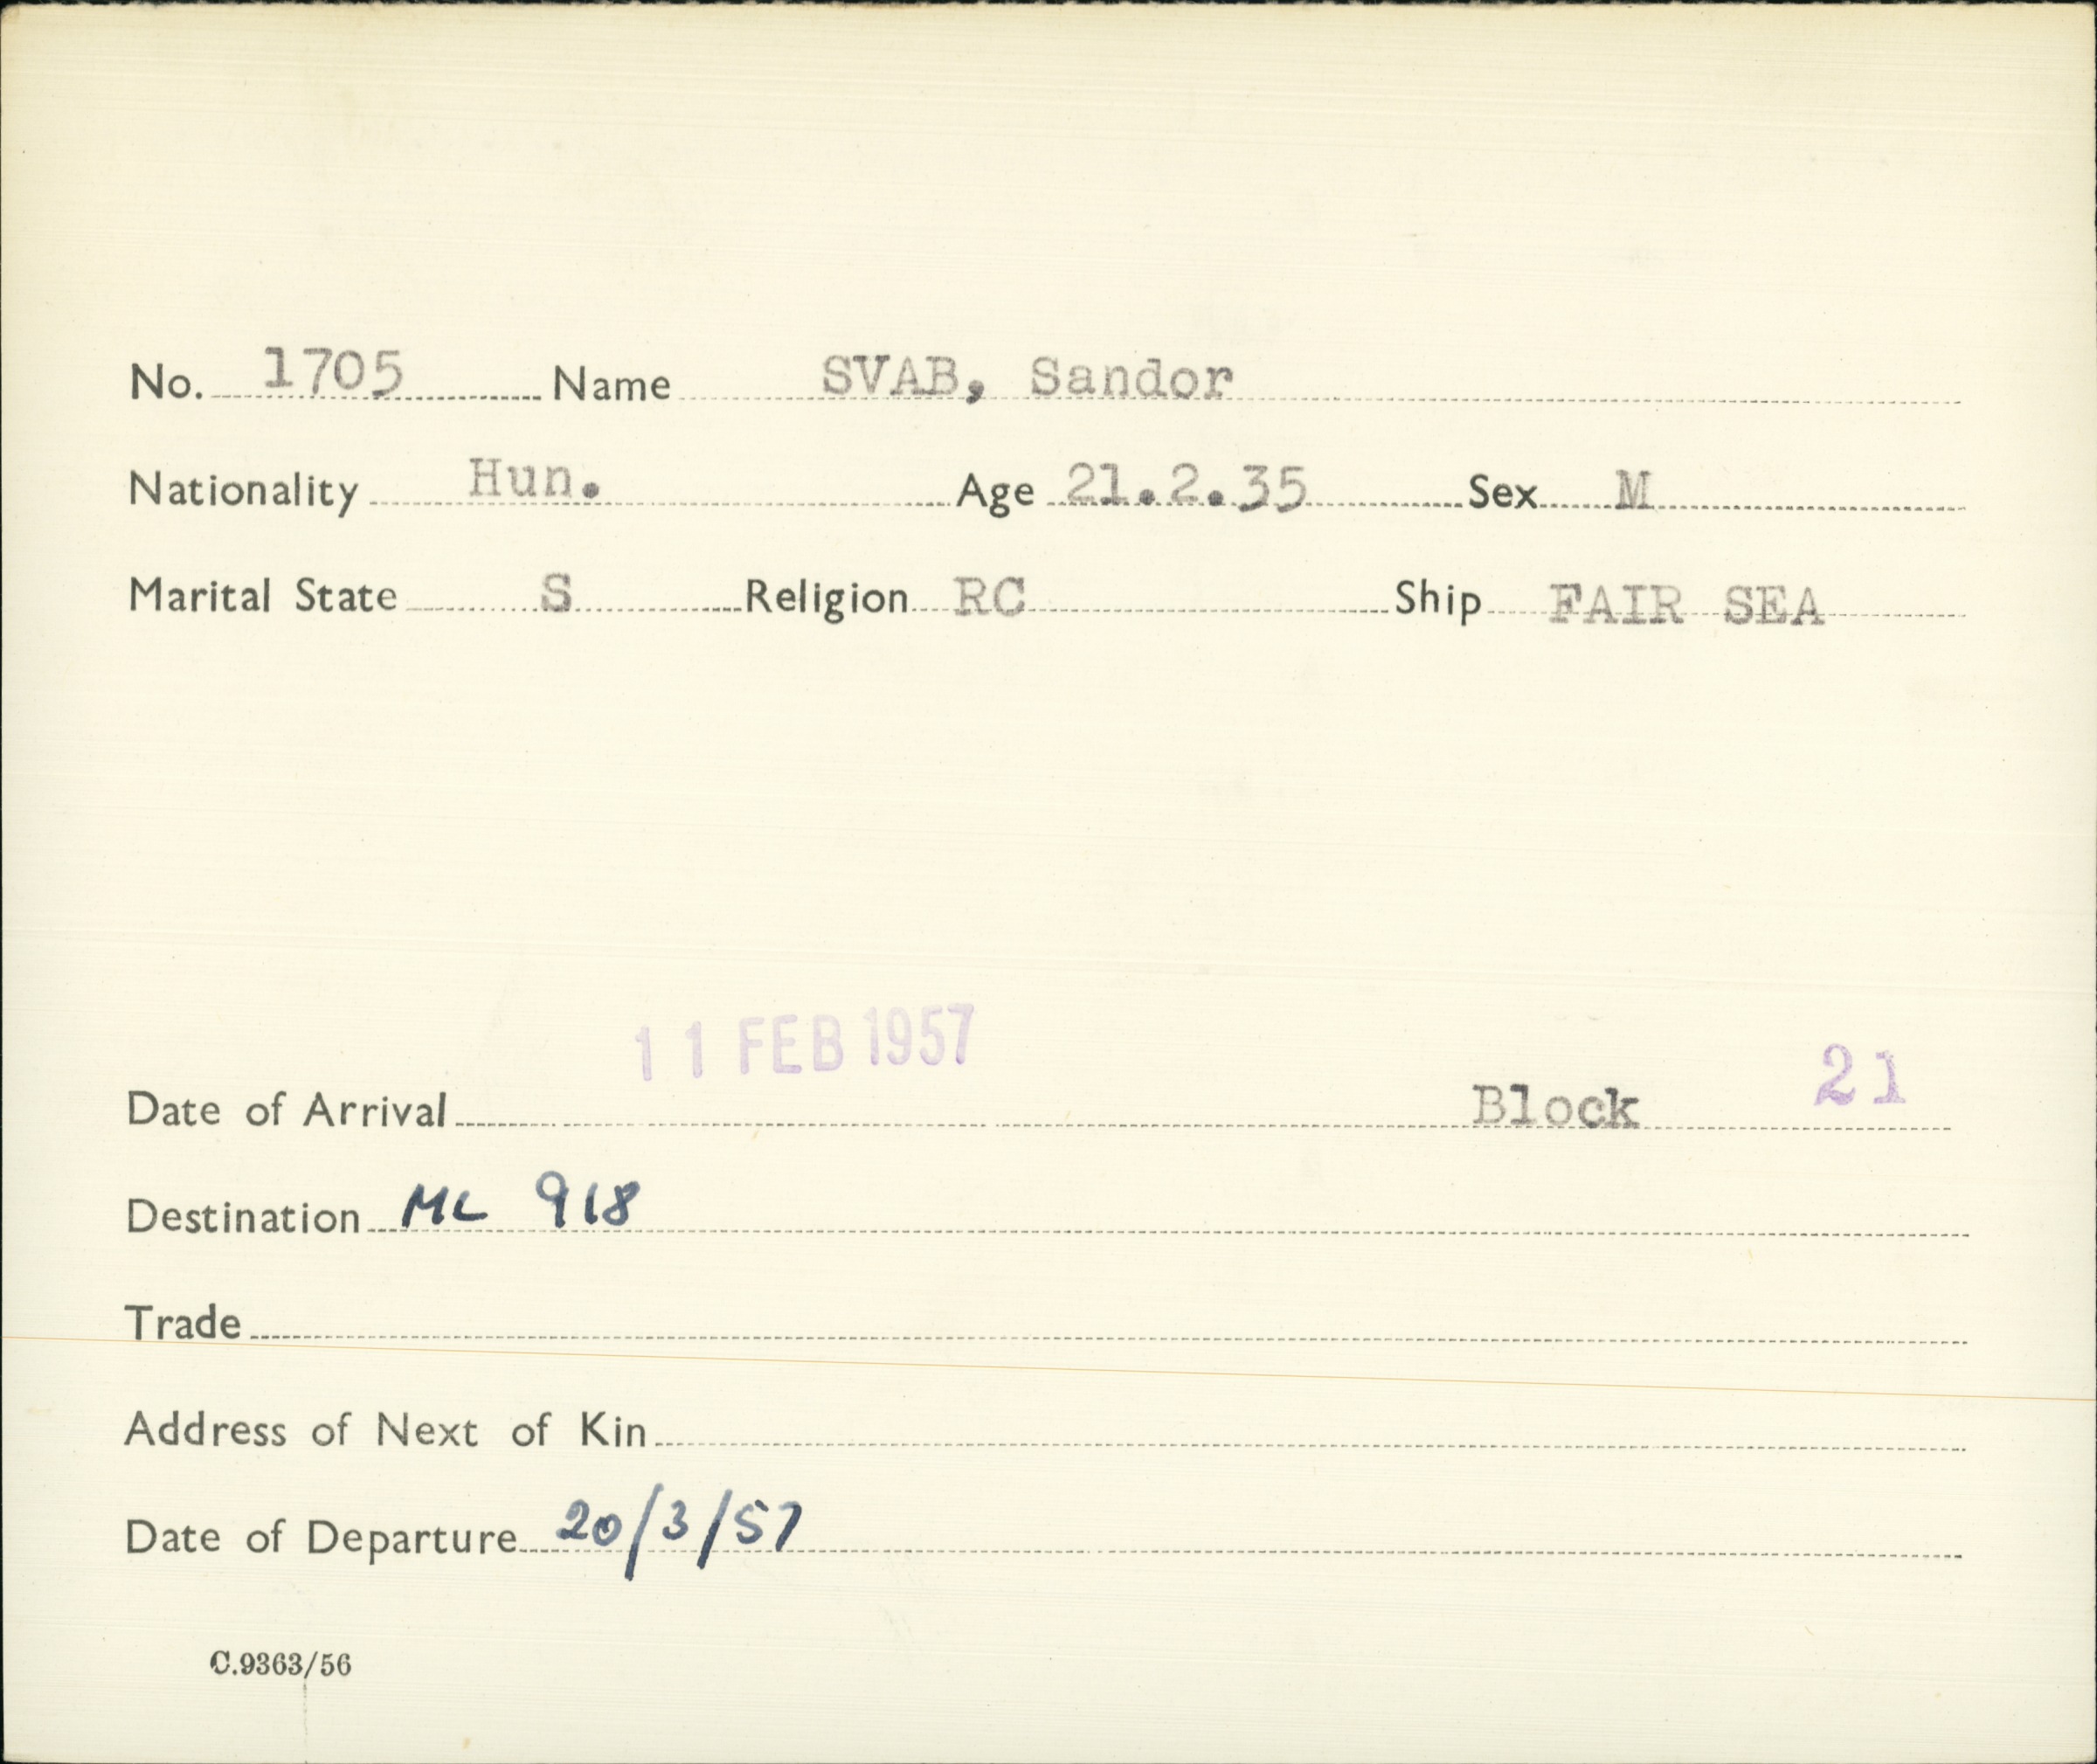 No. 1705 Name SVAB, Sandor
Nationality Hun. Age 21.2.35 Sex M
Marital State S Religion RC Ship FAIR SEA
11 FEB 1957
Date of Arrival Block 21
Destination ML 918
Trade
Address of Next of Kin
Date of Departure 20/3/57
C.9363/56